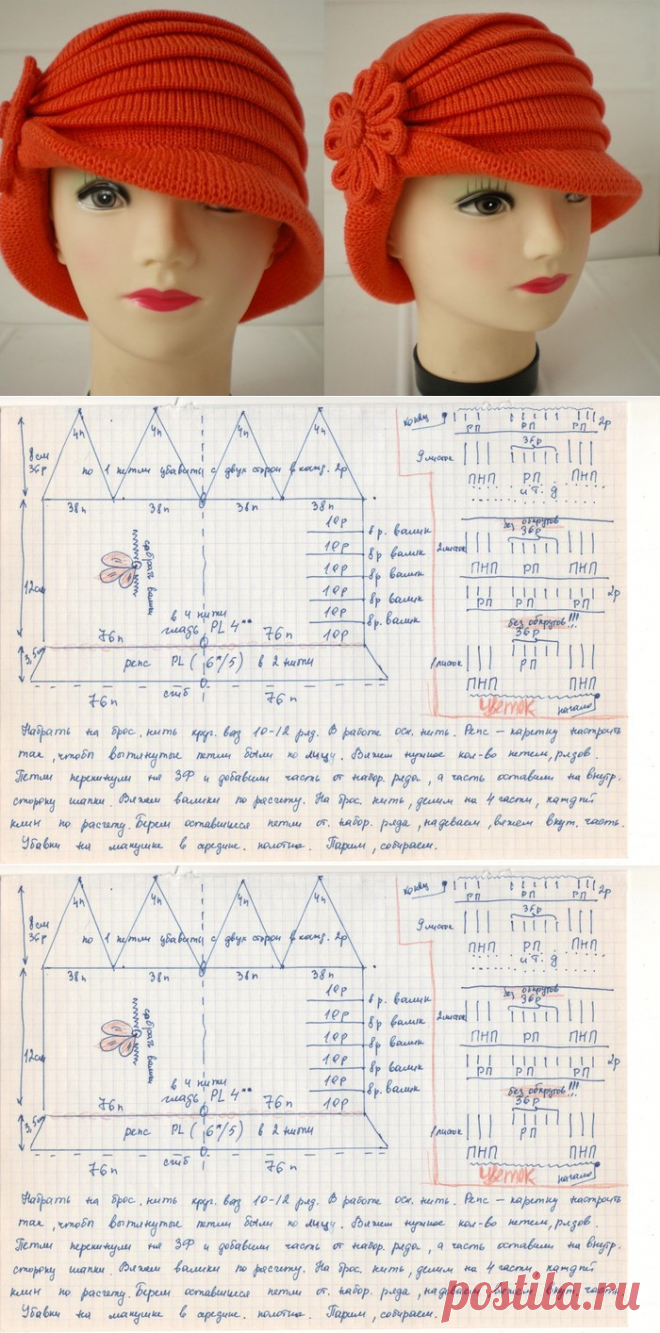 4п 4п 4п 4п
8см
36р
по 1 петли убавить с двух сторон в кажд. 2р
38п 38п 38п 38п
10р
8р. валик
10р
8р валик
10р
8р валик
10р
8р валик
10р
8р. валик
10р
собрать валики
12см
в 4 нити
гладь PL 4°°
76п 76п
3,5см
репс PL ( 6°/5) в 2 нити
сгиб
76п 0 76п
конец
РП РП РП 2р
9 листок
36р
ПНП РП ПНП
и т. д
без обкрутов
36р
2 листок
ПНП РП ПНП
РП РП РП 2р
без обкрутов!!!
36р
1 листок РП
ПНП ПНП
цветок начало
Набрать на брос. нить круг. вяз 10-12 ряд. В работе осн. нить. Репс – каретку настроить
так, чтобы вытянутые петли были по лицу. Вяжем нужное кол-во петель, рядов.
Петли перекинули на ЗФ и добавили часть от набор. ряда, а часть оставили на внутр.
сторону шапки. Вяжем валики по расчету. На брос. нить, делим на 4 части, каждый
клин по расчету. Берем оставшиеся петли от. набор. ряда, надеваем, вяжем внут. часть.
Убавки на макушке в середине. полотна. Парим, собираем.
4п 4п 4п 4п
8см
36р
по 1 петли убавить с двух сторон в кажд. 2р
38п 38п 38п 38п
10р
8р. валик
10р
8р валик
10р
8р валик
10р
8р валик
10р
8р. валик
10р
собрать валики
12см
в 4 нити
гладь PL 4°°
76п 76п
3,5см
репс PL ( 6°/5) в 2 нити
сгиб
76п 0 76п
конец
РП РП РП 2р
9 листок
36р
ПНП РП ПНП
и т. д
без обкрутов
36р
2 листок
ПНП РП ПНП
РП РП РП 2р
без обкрутов!!!
36р
1 листок РП
ПНП ПНП
цветок начало
Набрать на брос. нить круг. вяз 10-12 ряд. В работе осн. нить. Репс – каретку настроить
так, чтобы вытянутые петли были по лицу. Вяжем нужное кол-во петель, рядов.
Петли перекинули на ЗФ и добавили часть от набор. ряда, а часть оставили на внутр.
сторону шапки. Вяжем валики по расчету. На брос. нить, делим на 4 части, каждый
клин по расчету. Берем оставшиеся петли от. набор. ряда, надеваем, вяжем внут. часть.
Убавки на макушке в середине. полотна. Парим, собираем.
postila.ru